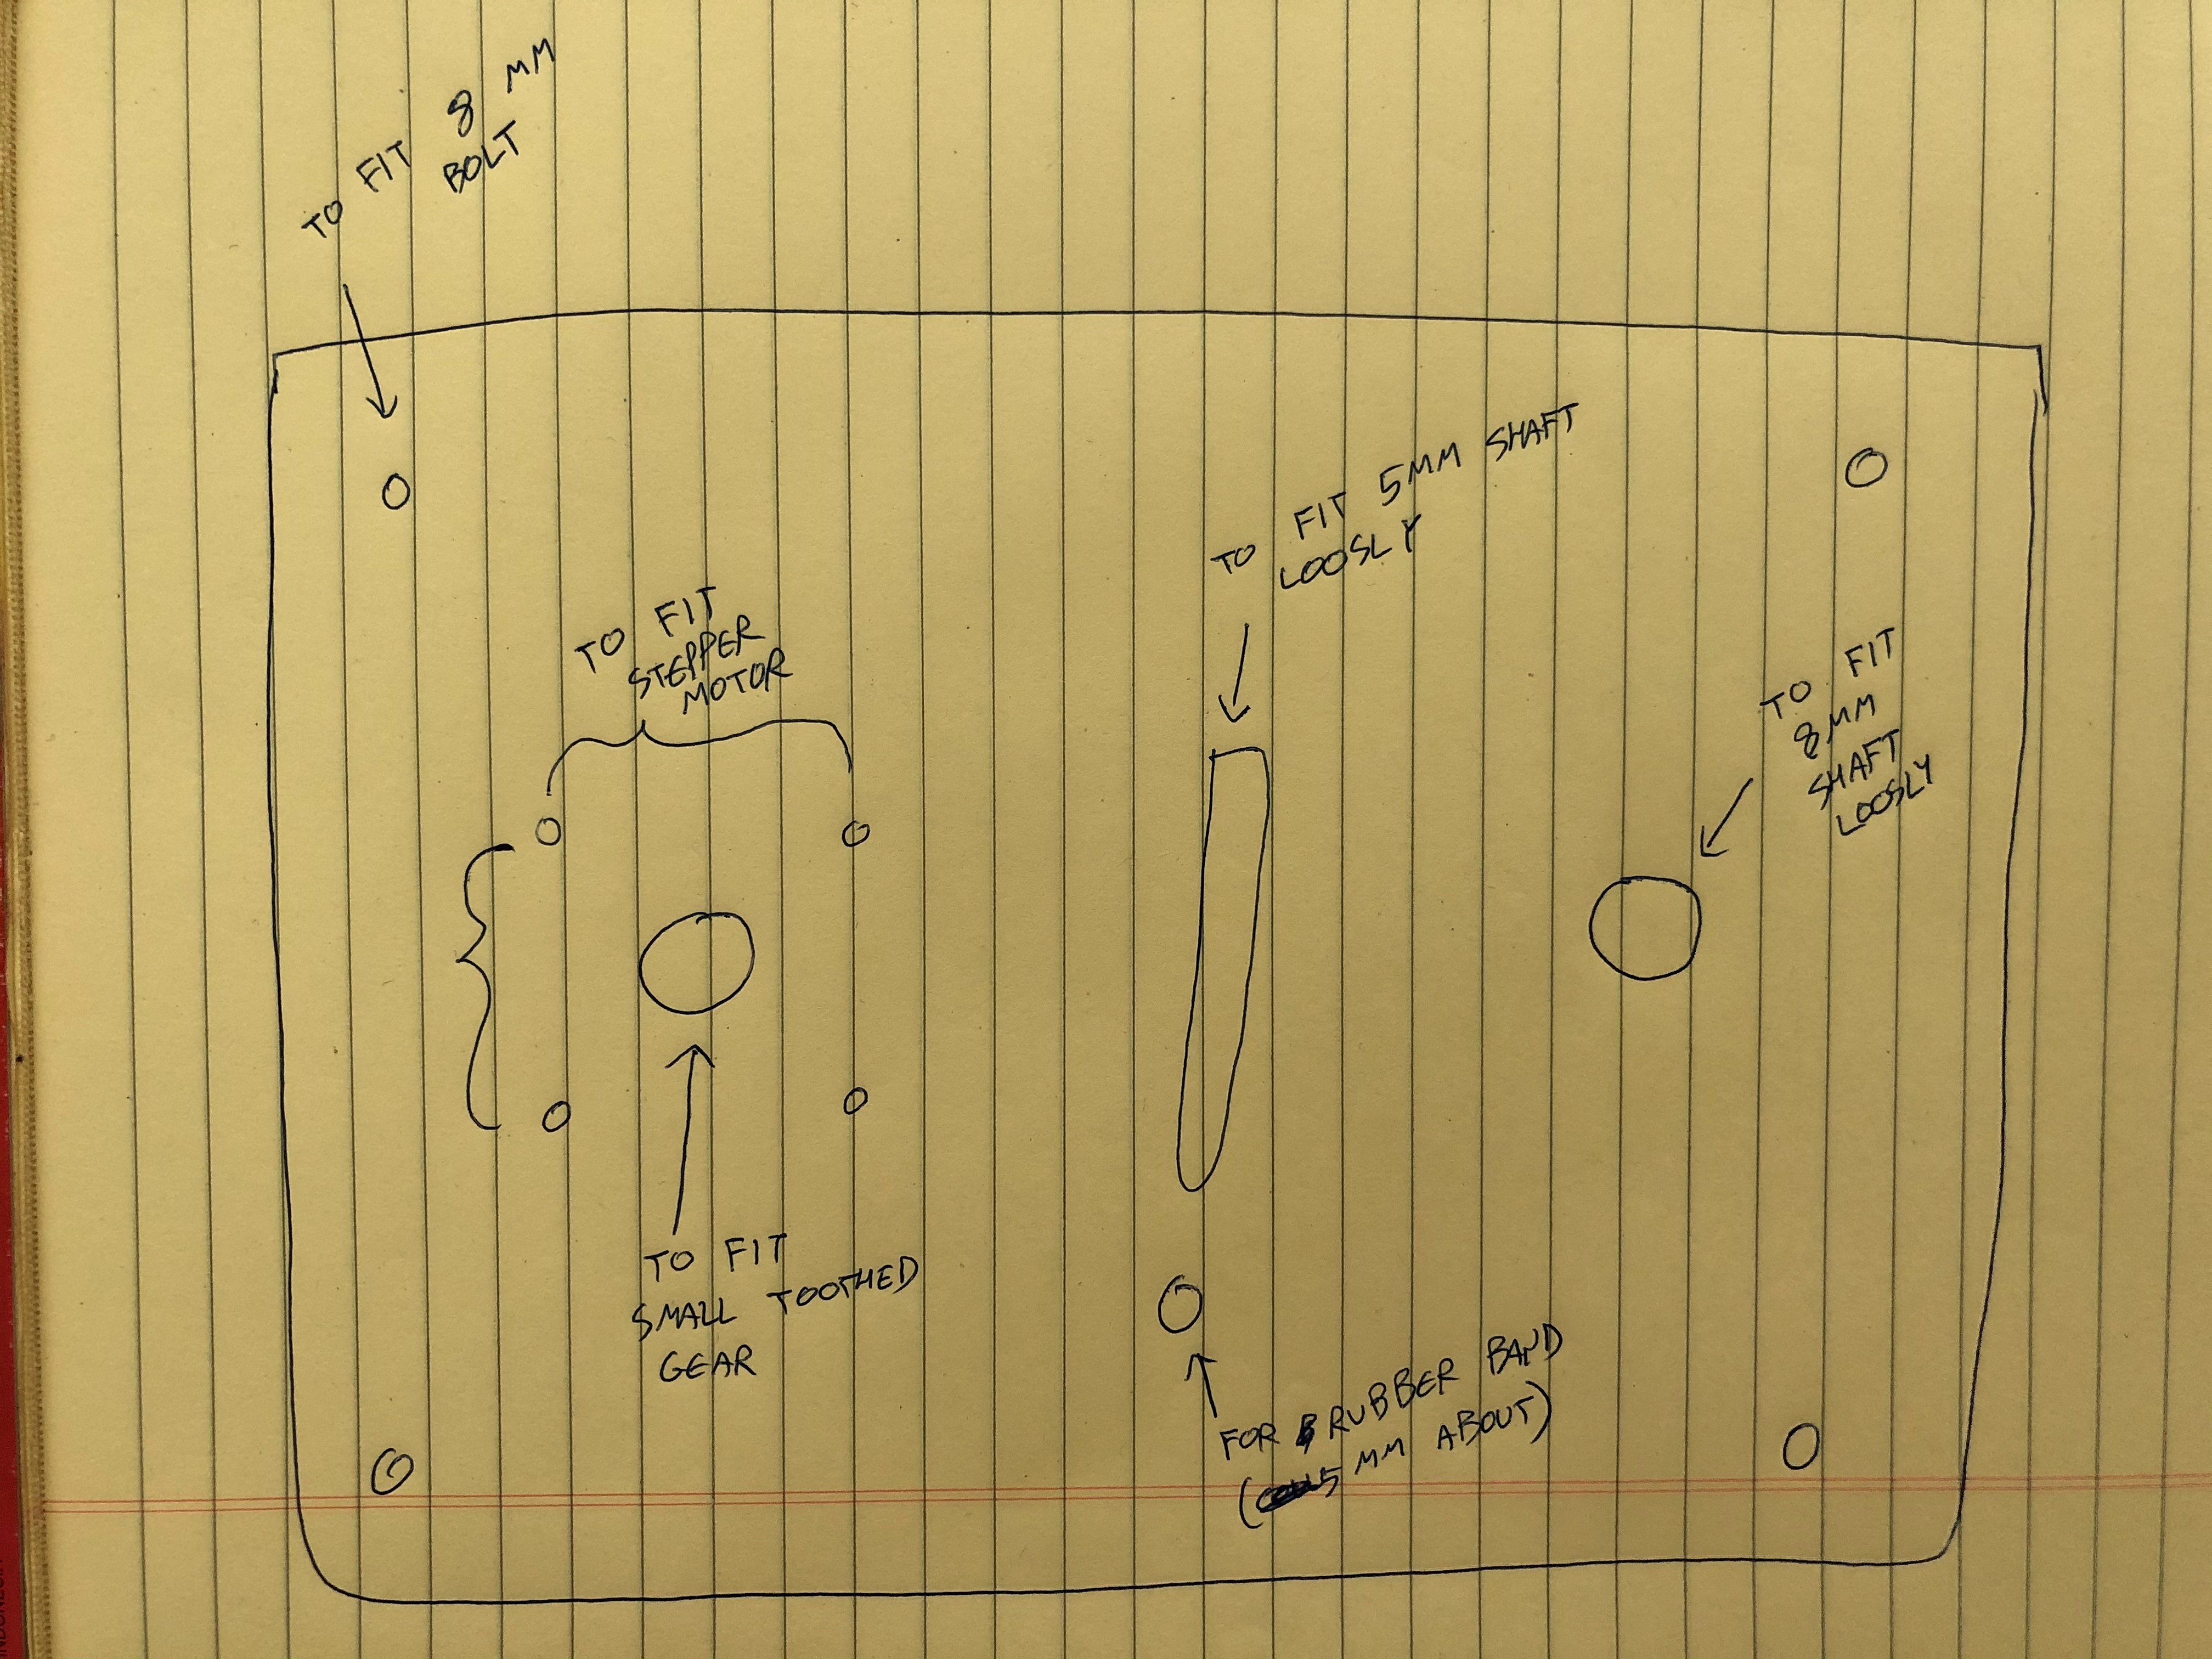 TO FIT 8 MM
BOLT
TO FIT 5MM SHAFT
LOOSLY
TO FIT
STEPPER
MOTOR
TO FIT
8MM
SHAFT
LOOSLY
TO FIT
SMALL TOOTHED
GEAR
FOR RUBBER BAND
(5 MM ABOUT)